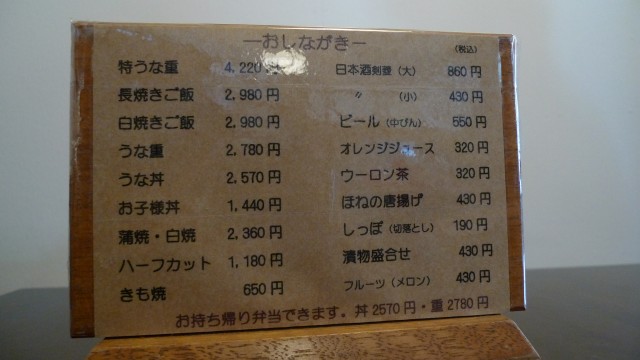 ―おしながき―
(税込)
特うな重 4,220円
長焼きご飯 2,980円
白焼きご飯 2,980円
うな重 2,780円
うな丼 2,570円
お子様丼 1,440円
蒲焼・白焼 2,360円
ハーフカット 1,180円
きも焼 650円
日本酒剣菱(大) 860円
〃 (小) 430円
ビール(中びん) 550円
オレンジジュース 320円
ウーロン茶 320円
ほねの唐揚げ 430円
しっぽ(切落とし) 190円
漬物盛合せ 430円
フルーツ(メロン) 430円
お持ち帰り弁当できます。丼2570円・重2780円